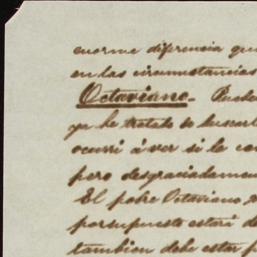 enorme diferencia que
en las circunstancias
Octaviano.
ya he tratado de buscarl
ocurri á ver si le con
pero desgraciadamen
El pobre Octaviano
por supuesto estará de
tambien debe estar